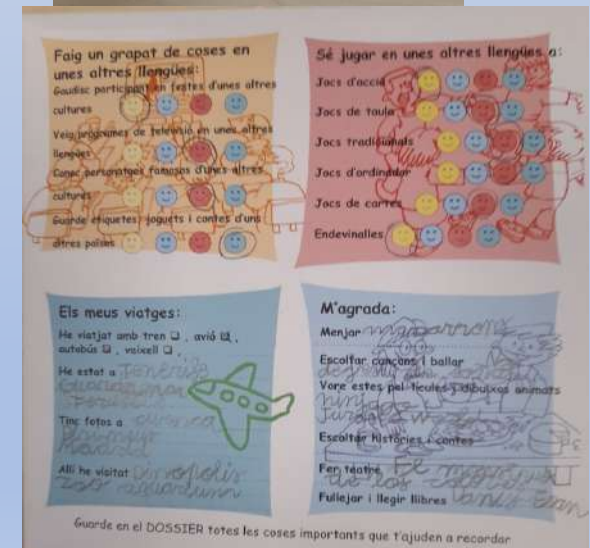 Faig un grapat de coses en
unes altres llengües:
Gaudisc participant en festes d'unes altres
cultures
Veig programes de televisió en unes altres
llengües
Conec personatges famosos d'unes altres
cultures
Guarde etiquetes, joguets i contes d'uns
altres països
Sé jugar en unes altres llengües a:
Jocs d'acció
Jocs de taula
Jocs tradicionals
Jocs d'ordinador
Jocs de cartes
Endevinalles
Els meus viatges:
He viatjat amb tren ❏ , avió ❏ ,
autobús ❏ , vaixell ❏ .
He estat a Tenerife
Tinc fotos a
Madrid
Allí he visitat Dinopolis
zoo
M'agrada:
Menjar macarrons
Escoltar cançons i ballar
Vore estes pel·lícules i dibuixos animats
Escoltar històries i contes
Fer teatre
Fullejar i llegir llibres
Guarde en el DOSSIER totes les coses importants que t'ajuden a recordar